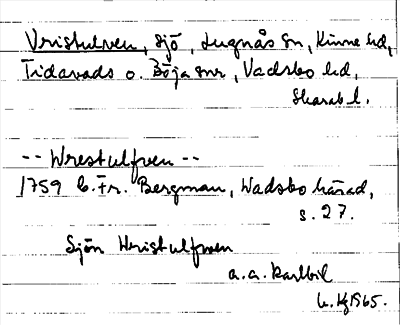 Vristulven, sjö, Lugnås sn, Kinne hd,
Tidavads o. Böja snr, Vadsbo hd,
Skarab l.
-- Wrestulfven --
1759 C.Fr. Bergman, Wadsbo härad,
s. 27.
Sjön Wristulfwen
a.a. kartbil
1965.